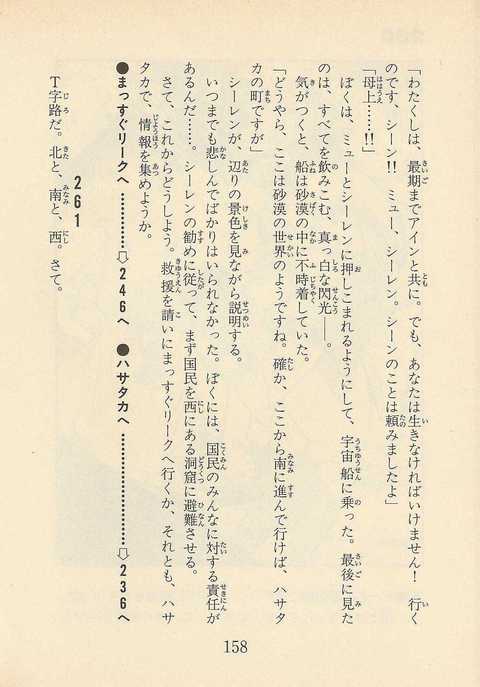 「わたくしは、最期までアインと共に。でも、あなたは生きなければいけません！　行く
のです、シーン!!　ミュー、シーレン。シーンのことは頼みましたよ」
「母上……!!」
　ぼくは、ミューとシーレンに押しこまれるようにして、宇宙船に乗った。最後に見た
のは、すべてを飲みこむ、真っ白な閃光――。
　気がつくと、船は砂漠の中に不時着していた。
「どうやら、ここは砂漠の世界のようですね。確か、ここから南に進んで行けば、ハサタ
カの町ですが」
　シーレンが、辺りの景色を見ながら説明する。
　いつまでも悲しんでばかりはいられなかった。ぼくには、国民のみんなに対する責任が
あるんだ……。シーレンの勧めに従って、まず国民を西にある洞窟に避難させる。
　さて、これからどうしよう。救援を請いにまっすぐリークへ行くか、それとも、ハサ
タカで、情報を集めようか。
●まっすぐリークへ…………⇨246へ　●ハサタカへ…………⇨236へ
261
　T字路だ。北と、南と、西。さて。
158